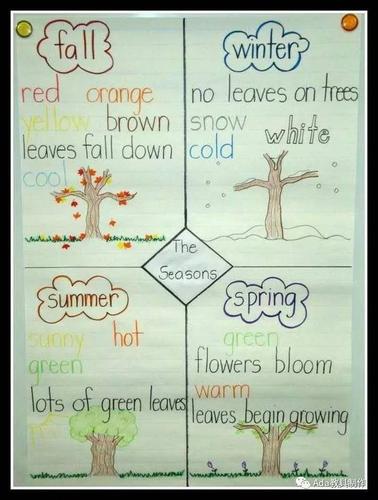 fall
red orange
yellow brown
leaves fall down
cool
winter
no leaves on trees
snow
white
cold
The
Seasons
summer
sunny hot
green
lots of green leaves
spring
green
flowers bloom
warm
leaves begin growing
Ada教具制作